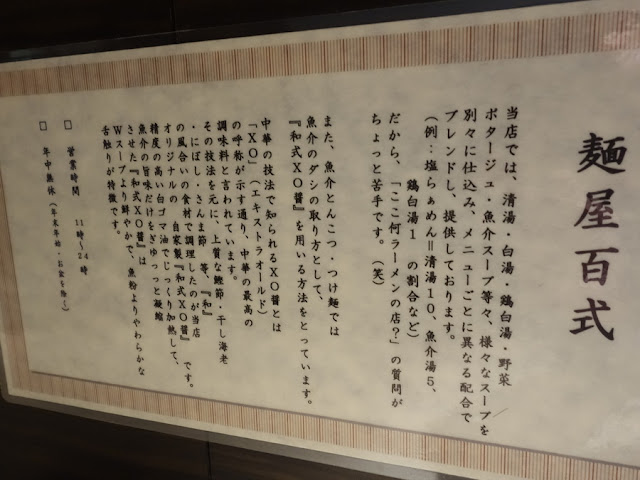 麺屋百式
当店では、清湯・白湯・鶏白湯・野菜
ポタージュ・魚介スープ等々、様々なスープを
別々に仕込み、メニューごとに異なる配合で
ブレンドし、提供しております。
（例：塩らぁめん＝清湯１０、魚介湯５、
鶏白湯１ の割合など）
だから、「ここ何ラーメンの店？」の質問が
ちょっと苦手です。（笑）
また、魚介とんこつ・つけ麺では
魚介のダシの取り方として、
『和式ＸＯ醤』を用いる方法をとっています。
中華の技法で知られるＸＯ醤とは
「ＸＯ」（エキストラオールド）
の呼称が示す通り、中華の最高の
調味料と言われています。
その技法を元に、上質な鰹節・干し海老
・にぼし・さんま節 等、『和』
の風合いの食材で調理したのが当店
オリジナルの 自家製『和式ＸＯ醤』 です。
精度の高い白ゴマ油でじっくり加熱して、
魚介の旨味だけをぎゅーっと凝縮
させた『和式ＸＯ醤』は
Ｗスープより鮮やかで、魚粉よりやわらかな
舌触りが特徴です。
□ 営業時間 １１時〜２４時
□ 年中無休（年末年始・お盆を除く）